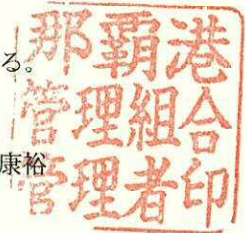 る。
康裕
那覇港
管理組合
管理者印